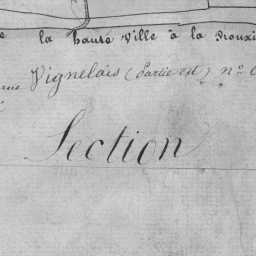 la haute Ville à la
Vignelais (Partie est) n°
Section